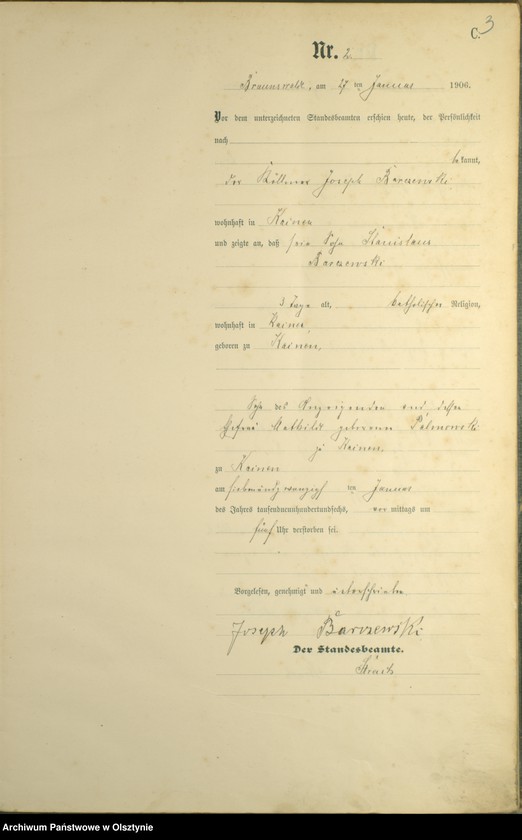 C. 3
Nr. 2
Braunswalde, am 27 ten Januar 1906.
Vor dem unterzeichneten Standesbeamten erschien heute, der Persönlichkeit
nach
bekannt,
der Köllmer Joseph Barczewski
wohnhaft in Kainen
und zeigte an, daß sein Sohn Stanislaus
Barczewski
3 Tage alt, katholischer Religion,
wohnhaft in Kainen,
geboren zu Kainen,
Sohn des Anzeigenden und dessen
Ehefrau Mathilde geborenen Palmowski
zu Kainen,
zu Kainen
am siebenundzwanzigsten ten Januar
des Jahres tausendneunhundertundsechs, vor mittags um
fünf Uhr verstorben sei.
Vorgelesen, genehmigt und unterschrieben
Joseph Barczewski
Der Standesbeamte.
Archiwum Państwowe w Olsztynie